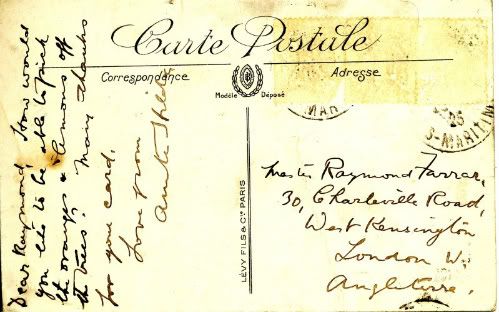 Carte Postale
Correspondance
Adresse
Modèle Déposé
MAR
25
S-MARITIM
LÉVY FILS & Cie PARIS
Dear Raymond, How would
you like to be able to pick
the oranges & lemons off
the trees? Many thanks
for your card.
Love from
Auntie
Master Raymond Farrar,
30, Charleville Road,
West Kensington
London W.
Angleterre.